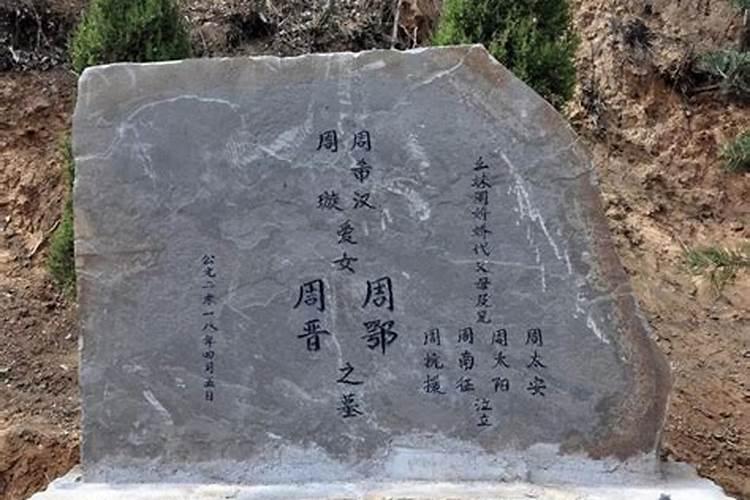 三妹周娇娇代父母及兄
周太安
周太阳
周南征
周抗援
泣立
周希汉
周璇
爱女
周鄂
周晋
之墓
公元二零一八年四月五日